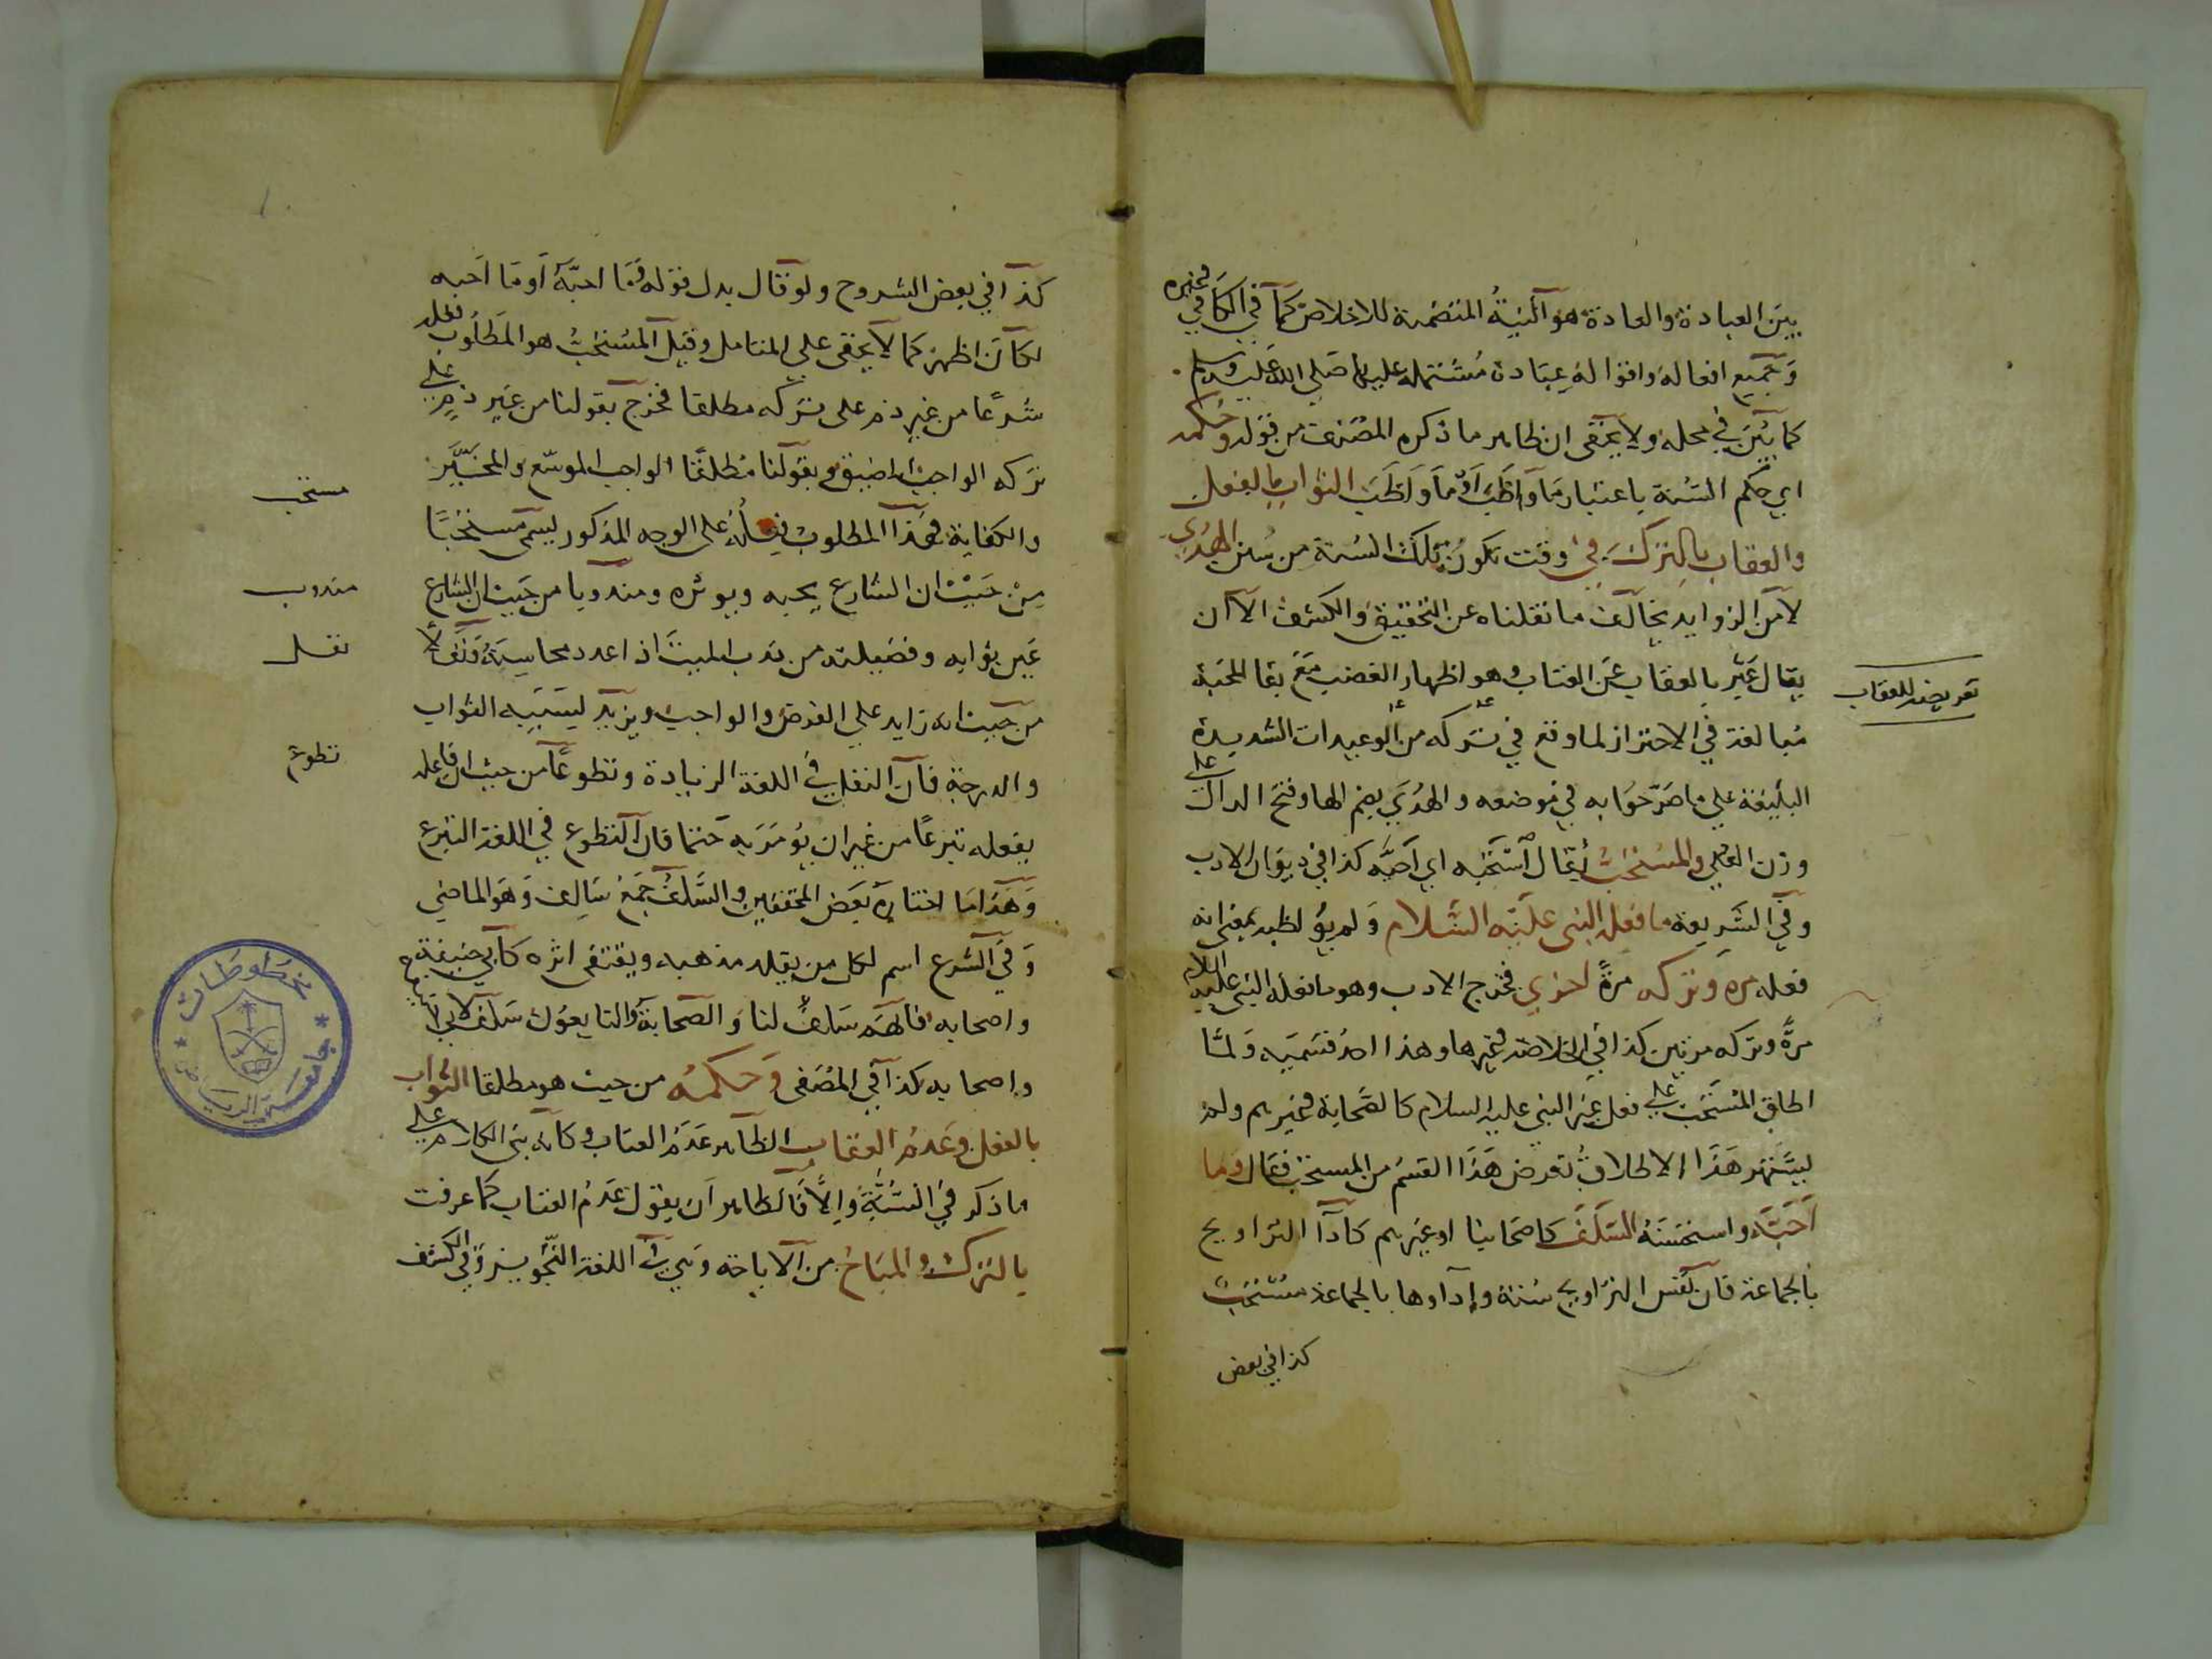 بين العبادة والعادة هو النية المتضمنة للاخلاص كما في الكافي وغيره
وجميع افعاله واقواله عبادة مشتملة عليها صلى الله عليه وسلم
كما بين في محله ولا يخفى ان ظاهر ما ذكره المصنف من قوله وحكمه
اي حكم السنة باعتبار ما واظب او ما واظب الثواب بالفعل
والعقاب بالترك في وقت تكون تلك السنة من سنن الهدي
لا من الزوايد يخالف ما نقلناه عن التحقيق والكشف الا ان
يقال عبر بالعقاب عن العتاب وهو اظهار الغضب مع بقا المحبة
تعريض للعقاب
مبالغة في الاحتراز لما وقع في تركه من الوعيدات الشديدة
البليغة على ما صرحوا به في موضعه والهدي بضم الها وفتح الدال على
وزن العلي والمستحب يقال استحبه اي احبه كذا في ديوان الادب
وفي الشريعة ما فعله النبي عليه السلام ولم يواظب بمعنى انه
فعله مرة وتركه مرة اخري فخرج الادب وهو ما فعله النبي عليه السلام
مرة وتركه مرتين كذا في الخلاصة وغيرها وهذا احد قسميه ولما
اطلق المستحب على فعل غير النبي عليه السلام كالصحابة وغيرهم ولم
يشتهر هذا الاطلاق تعرض هذا القسم من المستحب فقال وما
احبه واستحسنه السلف كاصحابنا او غيرهم كادآ التراويح
بالجماعة فان نفس التراويح سنة وادآوها بالجماعة مستحب
كذا في بعض
كذا في بعض الشروح ولو قال بدل قوله وما احبه او ما احبه
لكان اظهر كما لا يخفى على المتامل وقيل المستحب هو المطلوب فعله
شرعا من غير ذم على تركه مطلقا فخرج بقولنا من غير ذم على
تركه الواجب المضيق وبقولنا مطلقا الواجب الموسع والمخير
مستحب
والكفاية فهذا المطلوب فعله على الوجه المذكور يسمى مستحبا
من حيث ان الشارع يحبه ويوثره ومندوبا من حيث ان الشارع
مندوب
بين ثوابه وفضيلته من ندب الميت اذا عدد محاسنه ونفلا
نفل
من حيث انه زايد على الفرض والواجب ويزيد بسببه الثواب
والدرجة فان النفل في اللغة الزيادة وتطوعا من حيث ان فاعله
تطوع
يفعله تبرعا من غير ان يؤمر به حتما فان التطوع في اللغة التبرع
وهذا ما اختاره بعض المحققين والسلف جمع سالف وهو الماضي
وفي الشرع اسم لكل من يقلد مذهبه ويقتفى اثره كابي حنيفة
واصحابه فانهم سلف لنا والصحابة والتابعون سلف لابي حنيفة
واصحابه كذا في المصفى وحكمه من حيث هو مطلقا الثواب
بالفعل وعدم العقاب الظاهر عدم العتاب وكانه بنى الكلام على
ما ذكر في السنة والا فالظاهر ان يقول عدم العتاب كما عرفت
بالترك والمباح من الاباحة وهي في اللغة التجويز وفي الكشف
مخطوطات
جامعة الرياض